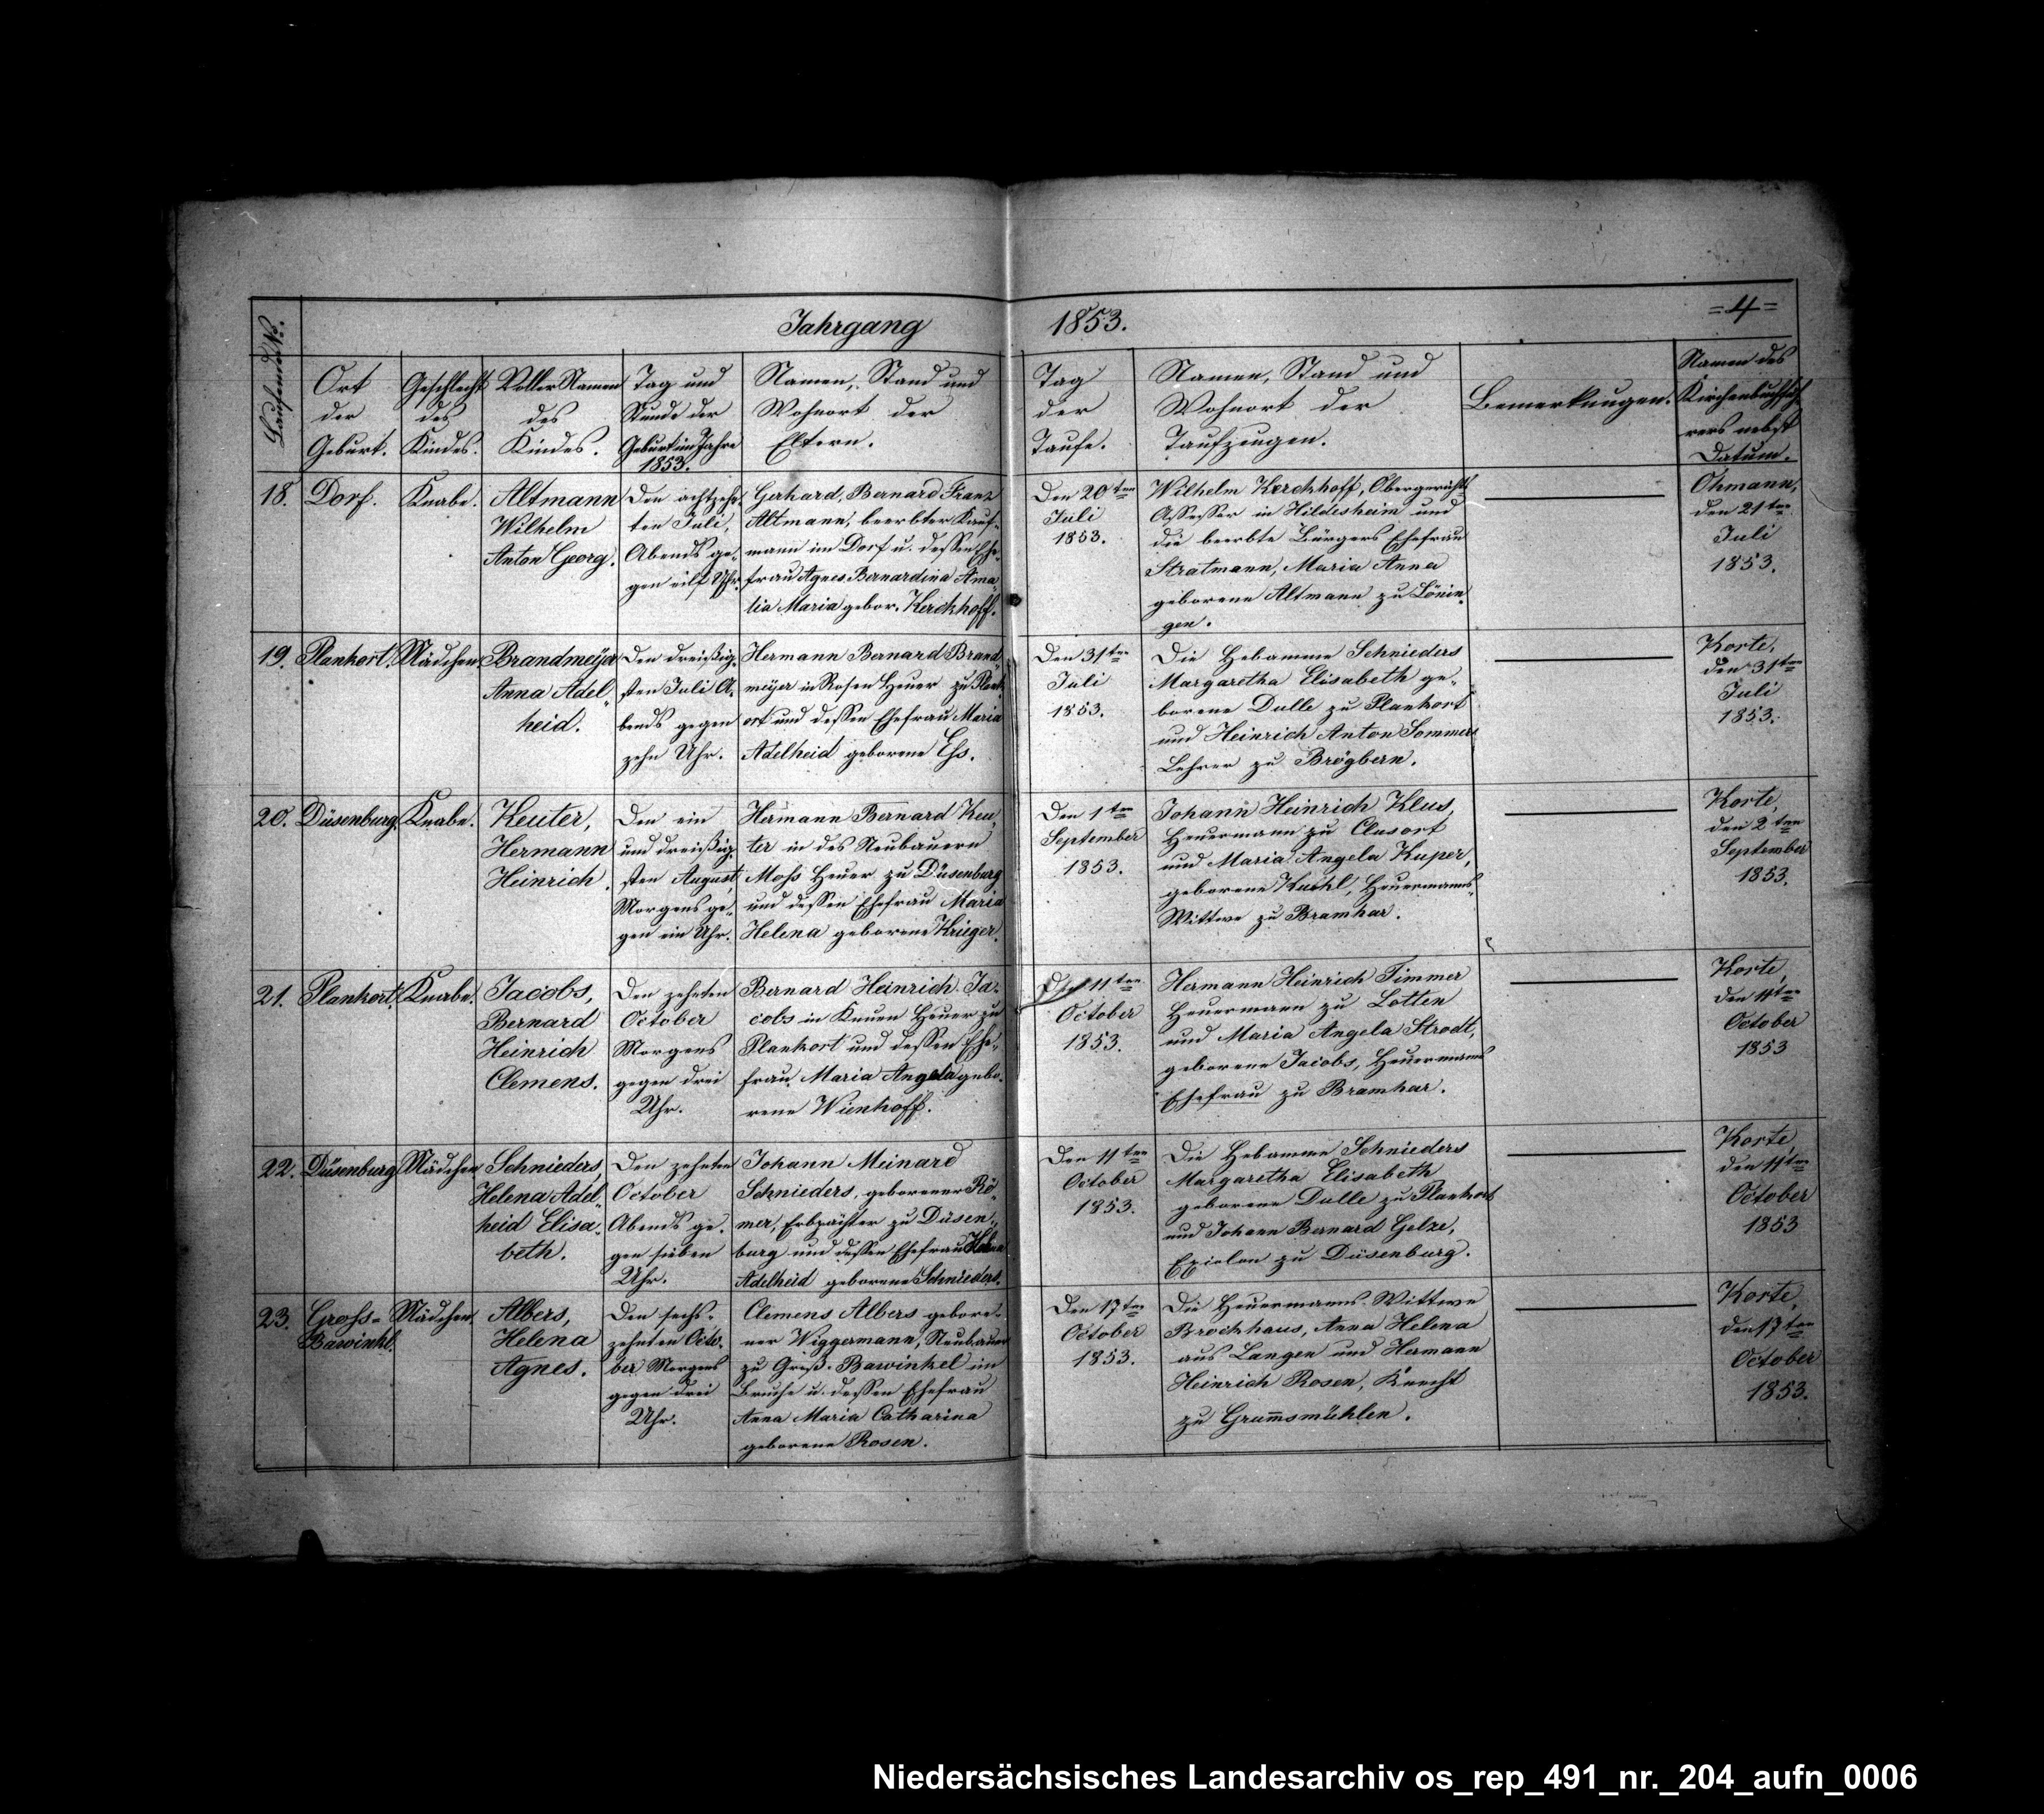 Jahrgang 1853. =4=
Laufende No.
Ort
der
Geburt.
Geschlecht
des
Kindes.
Voller Namen
des
Kindes.
Tag und
Stunde der
Geburt im Jahre
1853.
Namen, Stand und
Wohnort der
Eltern.
Tag
der
Taufe.
Namen, Stand und
Wohnort der
Taufzeugen.
Bemerkungen.
Namen des
Kirchenbuchfüh-
rers nebst
Datum.
18.
Dorf.
Knabe.
Altmann
Wilhelm
Anton Georg.
Den achtzehn-
ten Juli,
Abends ge-
gen eilf Uhr.
Gerhard, Bernard Franz
Altmann, beerbter Kauf-
mann im Dorf u. dessen Ehe-
frau Agnes Bernardina Ama-
lia Maria gebor. Kerckhoff.
Den 20ten
Juli
1853.
Wilhelm Kerckhoff, Obergerichts
Assessor in Hildesheim und
die beerbte Bürgers Ehefrau
Stratmann, Maria Anna
geborene Altmann zu Lönin-
gen.
Ohmann,
den 21ten
Juli
1853.
19.
Plankort.
Mädchen.
Brandmeÿer
Anna Adel-
heid.
Den dreißig-
sten Juli A-
bends gegen
zehn Uhr.
Hermann Bernard Brand-
meÿer in Rosen Heuer zu Plank-
ort und dessen Ehefrau Maria
Adelheid geborene Ehs.
Den 31ten
Juli
1853.
Die Hebamme Schnieders
Margaretha Elisabeth ge-
borene Dulle zu Plankort
und Heinrich Anton Sommers
Lehrer zu Brögbern.
Korte,
den 31ten
Juli
1853.
20.
Düsenburg.
Knabe.
Keuter,
Hermann
Heinrich.
Den ein
und dreißig-
sten August,
Morgens ge-
gen ein Uhr.
Hermann Bernard Keu-
ter in des Neubauern
Mohs Heuer zu Düsenburg
und dessen Ehefrau Maria
Helena geborene Krieger.
Den 1ten
September
1853.
Johann Heinrich Klus,
Heuermann zu Clusort
und Maria Angela Kuper,
geborene Kuhl, Heuermanns-
Wittwe zu Bramhar.
Korte,
den 2ten
September
1853.
21.
Plankort.
Knabe.
Jacobs,
Bernard
Heinrich
Clemens.
Den zehnten
October
Morgens
gegen drei
Uhr.
Bernard Heinrich Ja-
cobs in Knuen Heuer zu
Plankort und dessen Ehe-
frau Maria Angela gebo-
rene Wienhoff.
Den 11ten
October
1853.
Hermann Heinrich Timmer
Heuermann zu Lotten
und Maria Angela Strodt,
geborene Jacobs, Heuermanns
Ehefrau zu Bramhar.
Korte,
den 11ten
October
1853
22.
Düsenburg
Mädchen.
Schnieders,
Helena Adel-
heid Elisa-
beth.
Den zehnten
October
Abends ge-
gen sieben
Uhr.
Johann Meinard
Schnieders, geborener Rö-
mer, Erbpächter zu Düsen-
burg und dessen Ehefrau Helena
Adelheid geborene Schnieders.
Den 11ten
October
1853.
Die Hebamme Schnieders
Margaretha Elisabeth
geborene Dulle zu Plankort
und Johann Bernard Gelze,
zu Düsenburg.
Korte,
den 11ten
October
1853
23.
Grohs-
Bawinkel.
Mädchen.
Albers,
Helena
Agnes.
Den sechs-
zehnten Octo-
ber Morgens
gegen drei
Uhr.
Clemens Albers gebore-
ner Wiggermann, Neubauer
zu Groß-Bawinkel im
Bruche u. dessen Ehefrau
Anna Maria Catharina
geborene Rosen.
Den 17ten
October
1853.
Die Heuermanns-Wittwe
Brockhaus, Anna Helena
aus Langen und Hermann
Heinrich Rosen, Knecht
zu Grumsmühlen.
Korte,
den 17ten
October
1853.
Niedersächsisches Landesarchiv os_rep_491_nr._204_aufn_0006